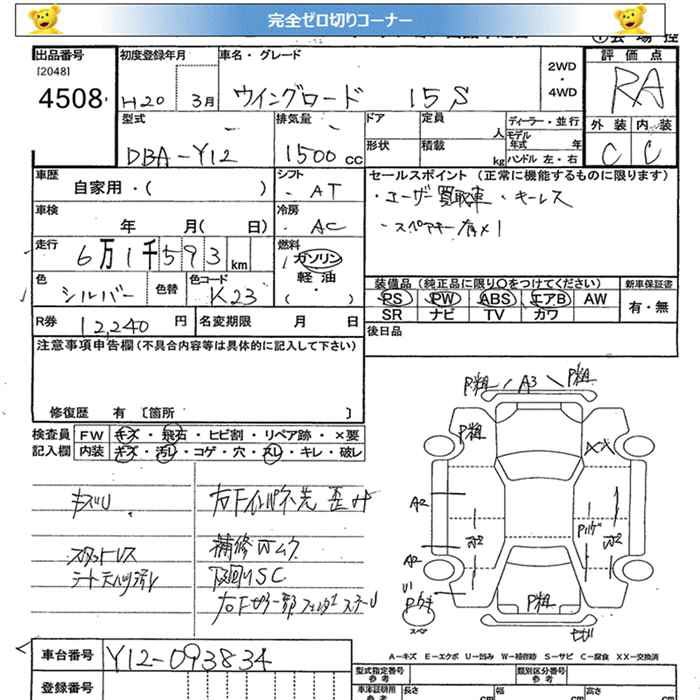 完全ゼロ切りコーナー
出品番号 初度登録年月 車名・グレード 2WD・4WD 評価点
[2048]
4508 H20 3月 ウイングロード 15S RA
型式 排気量 ドア 定員 人 ディーラー・並行 外装 内装
モデル年式 年
DBA-Y12 1500cc 形状 積載 kg ハンドル 左・右 C C
車歴 シフト セールスポイント (正常に機能するものに限ります)
自家用・( ) AT ・ユーザー買取車 ・キーレス
車検 冷房 ・スペアキー有×1
年 月( 日) AC
走行 燃料
6万1千593km ガソリン
軽油
・
( )
色 色替 色コード 装備品 (純正品に限り○をつけてください) 新車保証書
シルバー K23 PS PW ABS エアB AW 有・無
SR ナビ TV カワ
R券 12,240円 名変期限 月 日 後日品
注意事項申告欄 (不具合内容等は具体的に記入して下さい)
修復歴 有 〔箇所 〕
検査員 FW キズ・飛石・ヒビ割・リペア跡・×要
記入欄 内装 キズ・汚レ・コゲ・穴・スレ・キレ・破レ
P粗 A3 P粗
P粗 XX
キズU
A2
補修 ムク
A2
下廻りSC
P粗
スペア
A-キズ E-エクボ U-凹み W-補修跡 S-サビ C-腐食 XX-交換済
車台番号 Y12-093834
型式指定番号 参考 類別区分番号 参考
登録番号 車庫証明用 参考 長さ cm 幅 cm 高さ cm